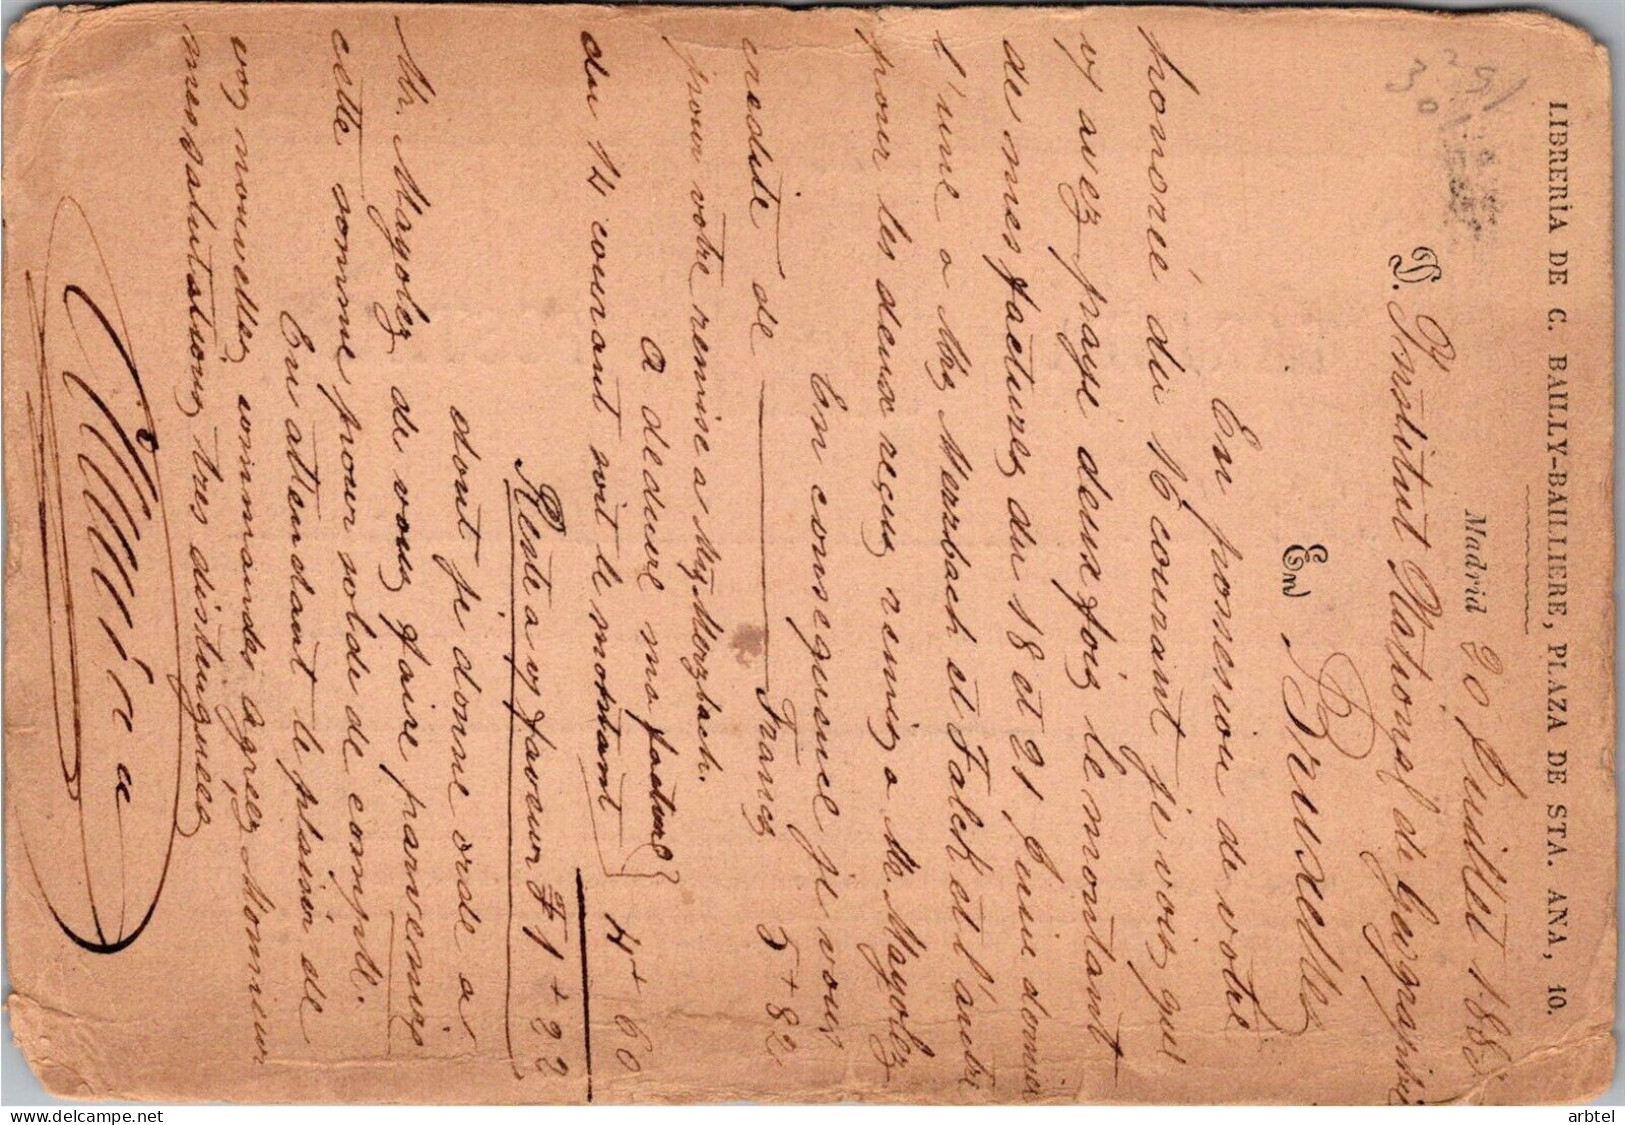 LIBRERÍA DE C. BAILLY-BAILLIERE, PLAZA DE STA. ANA, 10.
Madrid 20 Juillet 188
D. Institut National de Géographie
En Bruxelles
En possession de votre
honoré du 16 courant je vois que
vs avez payé deux fois le montant
de mes factures du 18 et 21 Juin donné
l'une a Mrs Merzbach et Falck et l'autre
pour les deux reçus remis a Mr. Mayolez
En consequense je vous
credite de Francs 5 + 82
pour votre remise a Mrs Merzbach.
A deduire ma facture
du 14 courant soit le montant 4 + 60
Reste a vs faveur F 1 + 22
dont je donne orde a
Mr. Mayolez de vous faire parvenir
cette somme pour solde de compte.
En attendant le plaisir de
vos nouvelles commandes agreez Monsieur
mes salutations tres distinguees
arbtel